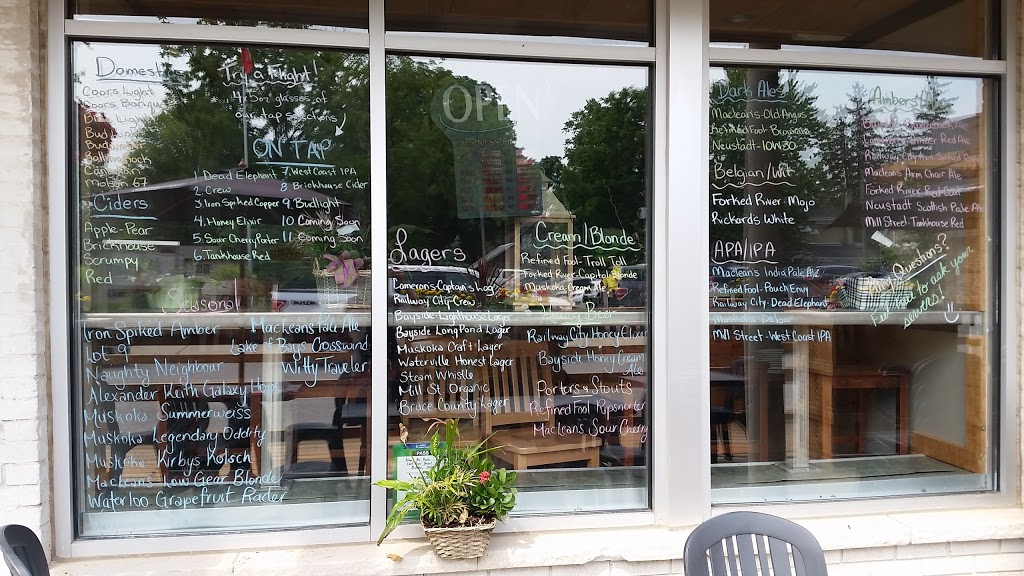 Domest
Coors Light
Coors Banqu
Bud
Canadian
Molson 67
Ciders
Apple-Pear
Brickhouse
Scrumpy
Red
Try a Flight!
4 5oz glasses of
our tap selections
ON TAP
1 Dead Elephant
2. Crew
3. Iron Spiked Copper
4. Honey Elixir
5. Sour Cherry Porter
6. Tankhouse Red
7. West Coast IPA
8 Brickhouse Cider
9. Budlight
10 Coming Soon
11 Coming Soon
Seasonal
Iron Spiked Amber
Lot 9
Naughty Neighbour
Alexander Keith Galaxy Hops
Muskoka Summerweiss
Muskoka Legendary Oddity
Muskoka Kirbys Kolsch
Macleans Low Gear Blonde
Waterloo Grapefruit Radler
Macleans Pale Ale
Lake of Bays Crosswind
Witty Traveler
OPEN
Lagers
Railway City-Crew
Bayside-Lighthouse Lager
Bayside Long Pond Lager
Muskoka Craft Lager
Waterville Honest Lager
Steam Whistle
Mill St. Organic
Bruce County Lager
Cream/Blonde
Refined Fool-Troll Toll
Forked River-Capitol Blonde
Muskoka-Cream Ale
Honey Beer
Railway City Honey Elixir
Bayside Honey Cream
Ale
Porters & Stouts
Refined Fool Ripsnorter
MacLeans Sour Cherry
PASS
Dark Ales
Macleans-Old Angus
Neustadt-10W30
Belgian/Wit
Forked River-Mojo
Rickards White
APA/IPA
Macleans India Pale Ale
Refined Fool-Pouch Envy
Railway City-Dead Elephant
Mill Street-West Coast IPA
Ambers/
Macleans Farm Chart Ale
Forked River-Red Coat
Neustadt Scottish Pale Ale
Mill Street-Tankhouse Red
Any Questions?
Feel free to ask your
server!